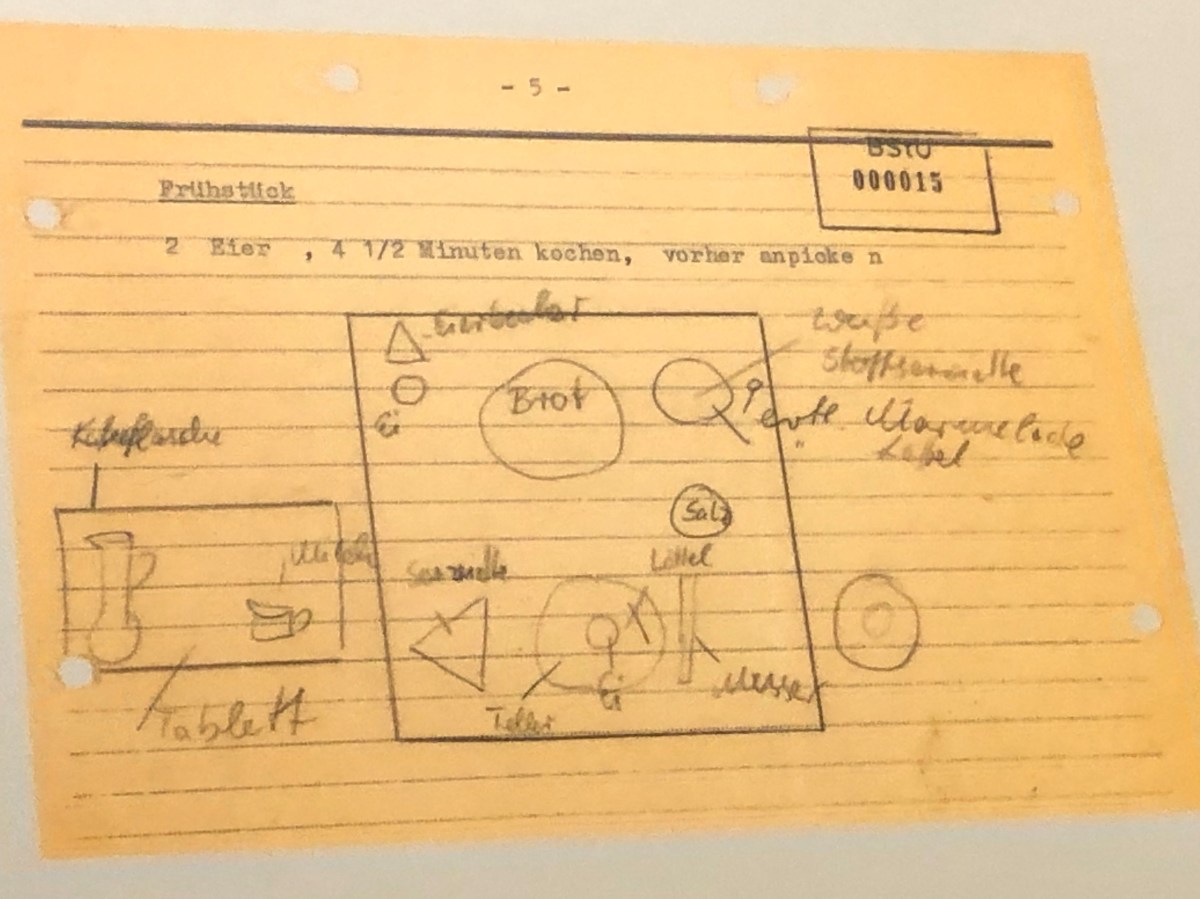 - 5 -
BStU
000015
Frühstück
2 Eier , 4 1/2 Minuten kochen, vorher anpicke n
Ei
Brot
Weiße
Stoffserviette
evtl. Marmelade
" Löffel
Salz
Milch
Serviette
Löffel
Ei
Messer
Teller
Tablett